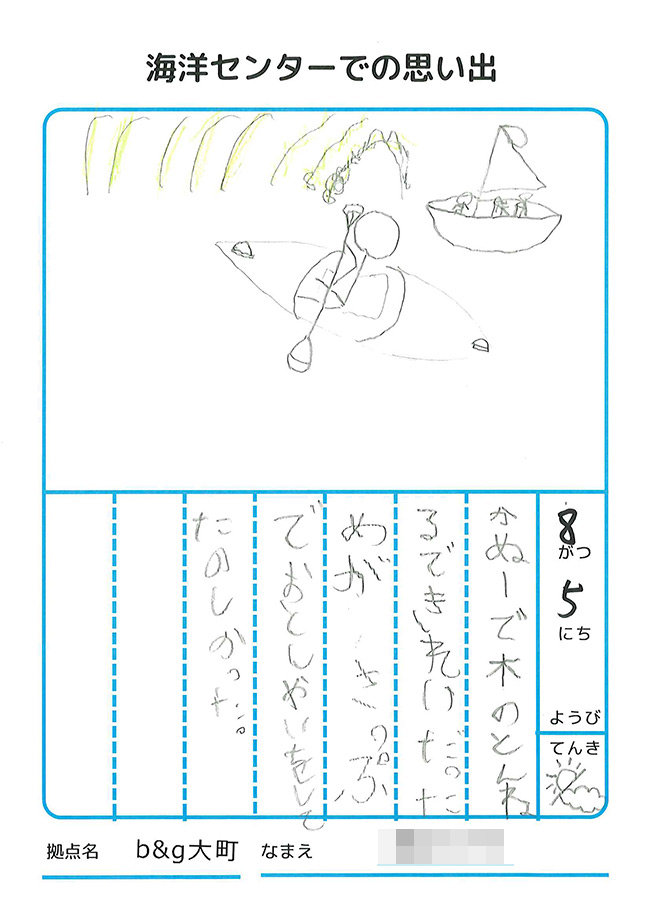 海洋センターでの思い出
8
がつ
5
にち
ようび
てんき
かぬーで木のとんね
るできれいだった
めが きっぷ
でおとしやいをして
たのしかった。
拠点名 b&g大町 なまえ